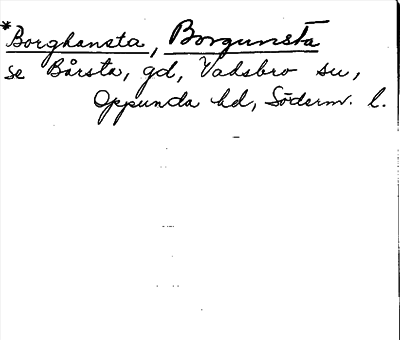 *Borghansta, Borgunsta
se Bårsta, gd, Vadsbro sn,
Oppunda hd, Söderm. l.